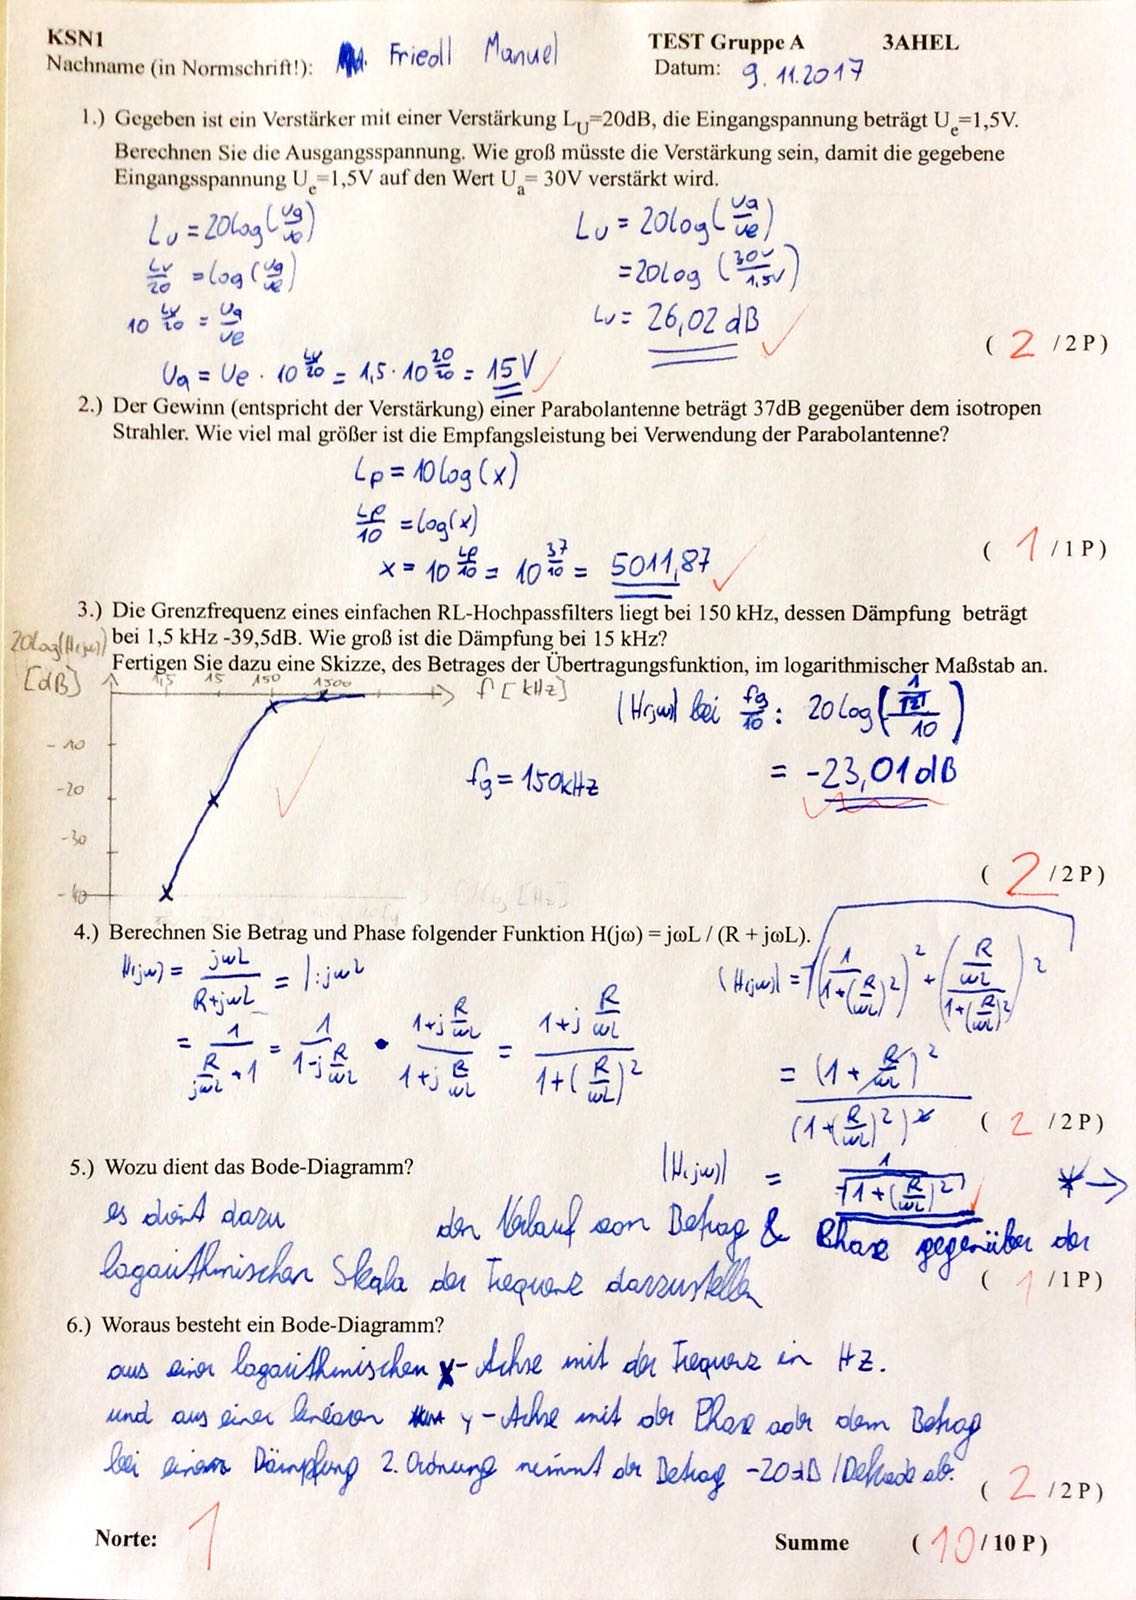 KSN1
TEST Gruppe A 3AHEL
Nachname (in Normschrift!): Friedl Manuel
Datum: 9.11.2017
1.) Gegeben ist ein Verstärker mit einer Verstärkung L_U=20dB, die Eingangspannung beträgt U_e=1,5V.
Berechnen Sie die Ausgangsspannung. Wie groß müsste die Verstärkung sein, damit die gegebene
Eingangsspannung U_e=1,5V auf den Wert U_a= 30V verstärkt wird.
Lu = 20log(Ua/Ue)
Lu/20 = log(Ua/Ue)
10^(Lu/20) = Ua/Ue
Ua = Ue · 10^(Lu/20) = 1,5 · 10^(20/20) = 15V
Lu = 20log(Ua/Ue)
= 20log(30V/1,5V)
Lu = 26,02 dB
( 2 /2 P)
2.) Der Gewinn (entspricht der Verstärkung) einer Parabolantenne beträgt 37dB gegenüber dem isotropen
Strahler. Wie viel mal größer ist die Empfangsleistung bei Verwendung der Parabolantenne?
Lp = 10log(x)
Lp/10 = log(x)
x = 10^(Lp/10) = 10^(37/10) = 5011,87
( 1 /1 P)
3.) Die Grenzfrequenz eines einfachen RL-Hochpassfilters liegt bei 150 kHz, dessen Dämpfung beträgt
bei 1,5 kHz -39,5dB. Wie groß ist die Dämpfung bei 15 kHz?
Fertigen Sie dazu eine Skizze, des Betrages der Übertragungsfunktion, im logarithmischer Maßstab an.
20log(H(jω))
[dB]
1,5 15 150 1500 f [kHz]
-10
-20
-30
-40
fg = 150kHz
|H(jω)| bei fg/10 : 20log((1/√2)/10)
= -23,01 dB
( 2 /2 P)
4.) Berechnen Sie Betrag und Phase folgender Funktion H(jω) = jωL / (R + jωL).
H(jω) = jωL/(R+jωL) = |:jωL
= 1/(R/jωL +1) = 1/(1-j R/ωL) • (1+j R/ωL)/(1+j R/ωL) = (1+j R/ωL)/(1+(R/ωL)²)
|H(jω)| = √((1/(1+(R/ωL)²))² + ((R/ωL)/(1+(R/ωL)²))²)
= (1+ R/ωL)²/(1+(R/ωL)²)²
( 2 /2 P)
|H(jω)| = 1/√(1+(R/ωL)²) * →
5.) Wozu dient das Bode-Diagramm?
es dient dazu den Verlauf vom Betrag & Phase gegenüber der
logarithmischen Skala der Frequenz darzustellen
( 1 /1 P)
6.) Woraus besteht ein Bode-Diagramm?
aus einer logarithmischen x-Achse mit der Frequenz in HZ.
und aus einer linearen y-Achse mit der Phase oder dem Betrag
bei einem Dämpfung 2. Ordnung nimmt der Betrag -20dB/Dekade ab.
( 2 /2 P)
Norte: 1
Summe ( 10 / 10 P)